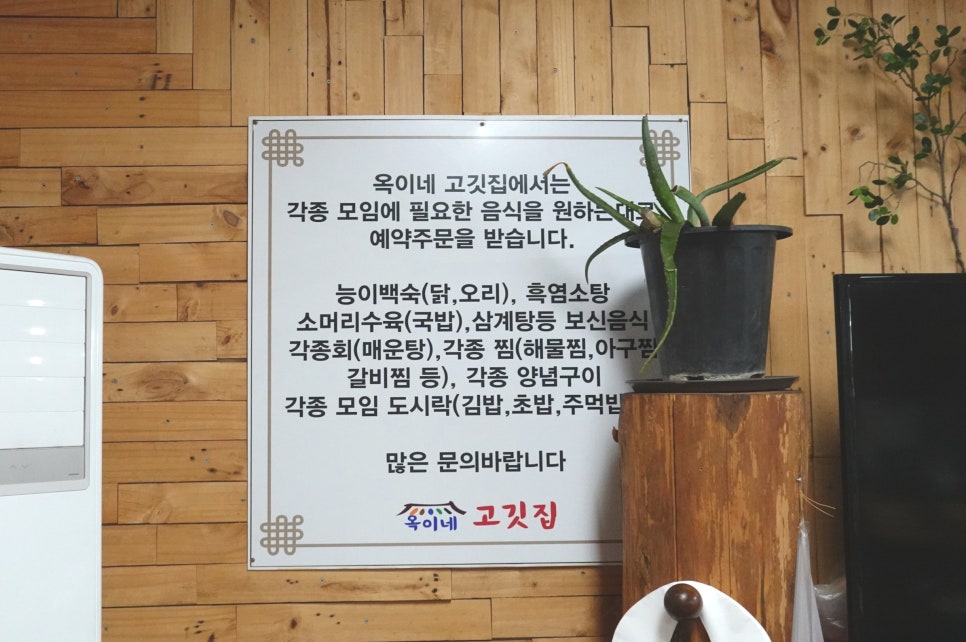 옥이네 고깃집에서는
각종 모임에 필요한 음식을 원하는대로
예약주문을 받습니다.
능이백숙(닭,오리), 흑염소탕
소머리수육(국밥),삼계탕등 보신음식
각종회(매운탕),각종 찜(해물찜,아구찜
갈비찜 등), 각종 양념구이
각종 모임 도시락(김밥,초밥,주먹밥
많은 문의바랍니다
옥이네 고깃집